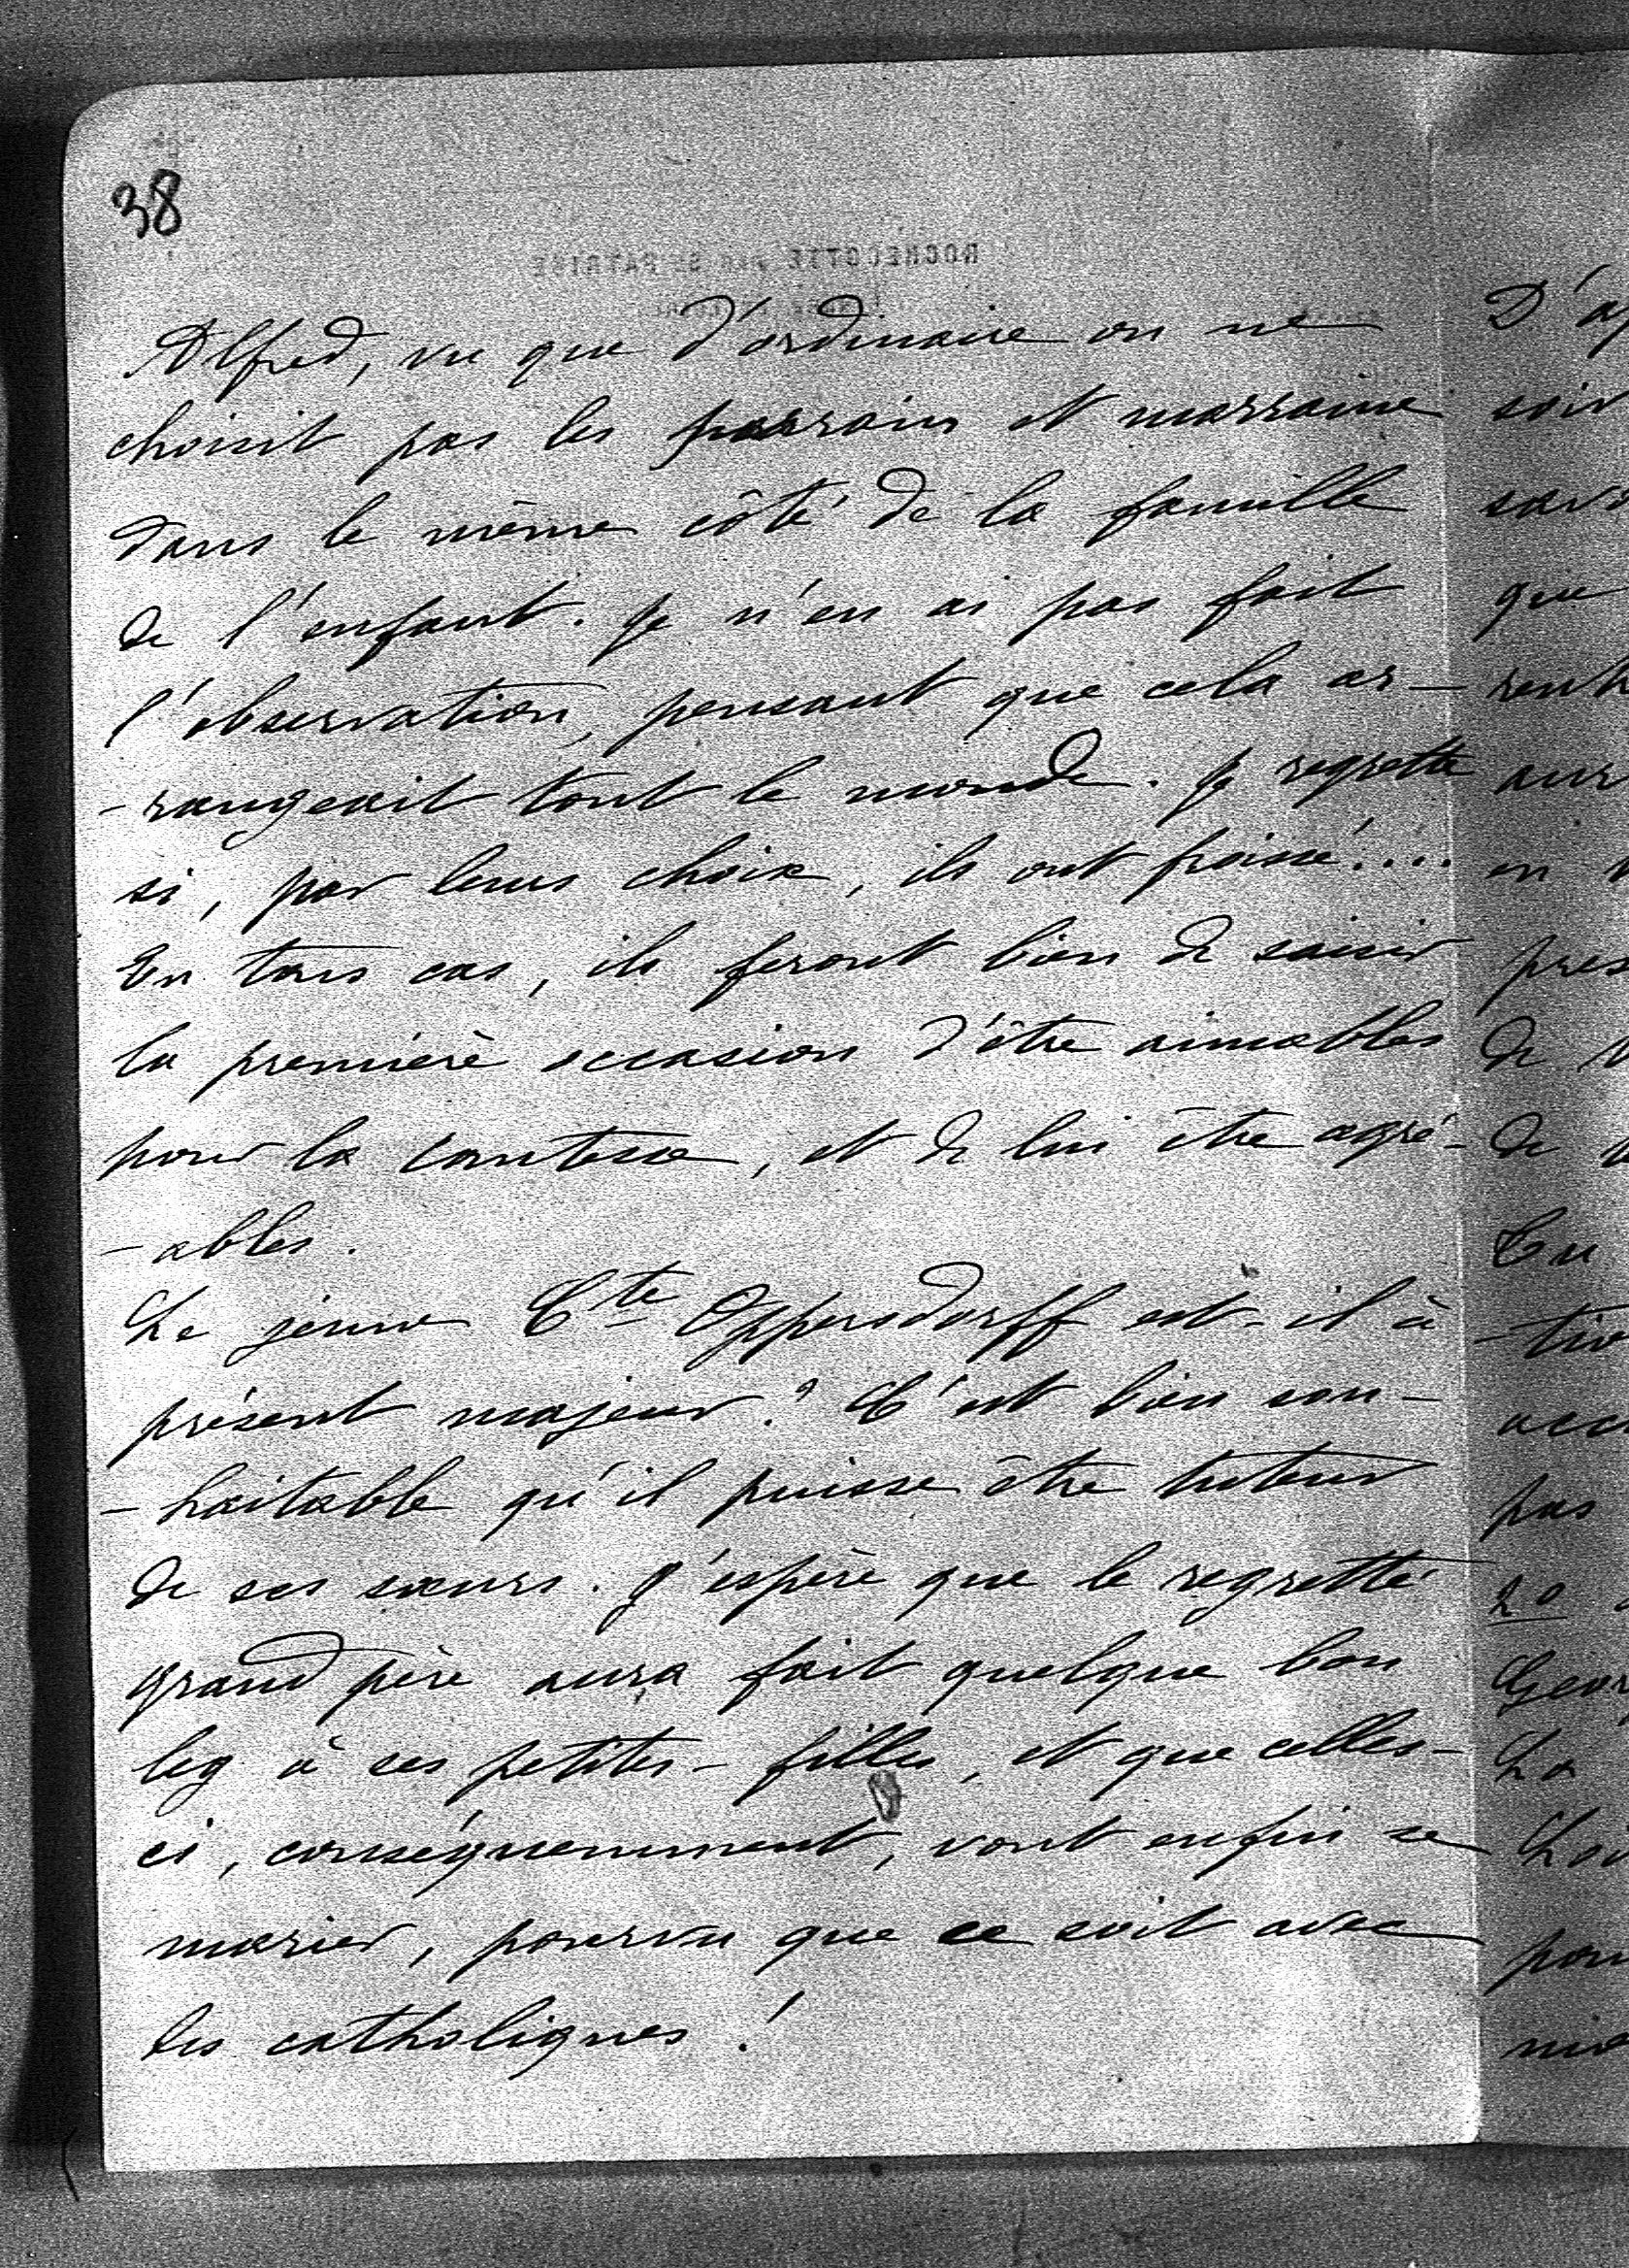 38
ROCHECOTTE PAR ST PATRICE
Alfred, vu que d'ordinaire on ne
choisit pas les parrain et marraine
dans le même côté de la famille
de l'enfant. Je n'en ai pas fait
l'observation, pensant que cela ar-
-rangeait tout le monde. Je regrette
si, par leurs choix, ils ont froissé....
En tous cas, ils feront bien de saisir
la première occasion d'être aimables
pour la comtesse, et de lui être agré-
-ables.
Le jeune Cte Oppersdorff est-il à
présent majeur? C'est bien sou-
-haitable qu'il puisse être tuteur
de ses sœurs. J'espère que le regretté
grand père aura fait quelque bon
leg à ses petites-filles, et que celles-
ci, conséquemment, vont enfin se
marier, pourvu que ce soit avec
des catholiques!
D'ap
soir
savo
que
rent
aur
en
pres
de
de
Tu
-tiv
acc
pas
20
Geor
La
Loi
pou